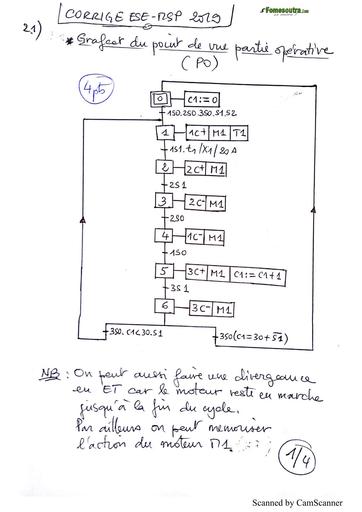 CORRIGE ESE-MSP 2019
Fomesoutra.com
2.1)
* Grafcet du point de vue partie opérative
(PO)
4pts
0 C1:=0
1S0.2S0.3S0.S1.S2
1 1C+ M1 T1
1S1.t1/X1/20s
2 2C+ M1
2S1
3 2C- M1
2S0
4 1C- M1
1S0
5 3C+ M1 C1:=C1+1
3S1
6 3C- M1
3S0.C1<30.S1
3S0(C1=30+S̅1̅)
NB : On peut aussi faire une divergence
en ET car le moteur reste en marche
jusqu'à la fin du cycle.
Par ailleurs on peut memoriser
l'action du moteur M1.
1/4
Scanned by CamScanner